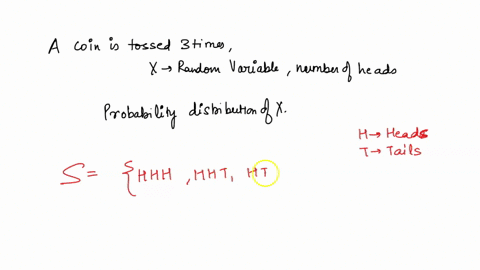 A coin is tossed 3 times,
X → Random Variable, number of heads
Probability distribution of X.
H → Heads
T → Tails
S = { HHH, HHT, HT